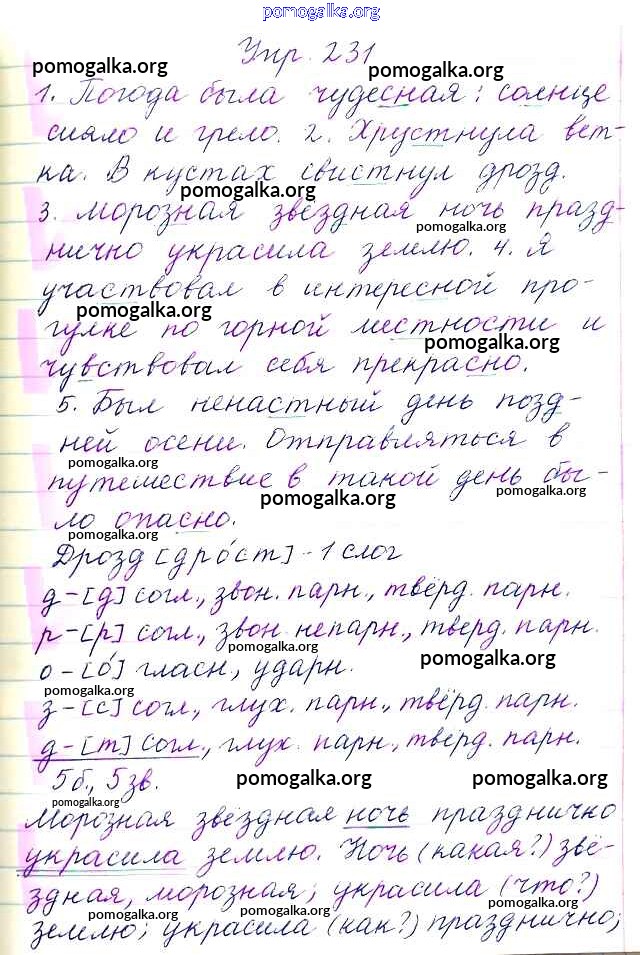 pomogalka.org
Упр. 231
pomogalka.org
pomogalka.org
1. Погода была чудесная: солнце
сияло и грело. 2. Хрустнула вет-
ка. В кустах свистнул дрозд.
pomogalka.org
3. Морозная звёздная ночь празд-
pomogalka.org
нично украсила землю. 4. Я
участвовал в интересной про-
pomogalka.org
гулке по горной местности и
pomogalka.org
чувствовал себя прекрасно.
5. Был ненастный день позд-
ней осени. Отправляться в
pomogalka.org
путешествие в такой день бы-
pomogalka.org
pomogalka.org
ло опасно.
Дрозд [дро́ст] - 1 слог
д-[д] согл., звон. парн., твёрд. парн.
р-[р] согл., звон. непарн., тверд. парн.
о-[о́] гласн., ударн.
pomogalka.org
pomogalka.org
з-[с] согл., глух. парн., твёрд. парн.
д-[т] согл., глух. парн., тверд. парн.
pomogalka.org
5 б., 5 зв.
pomogalka.org
pomogalka.org
Морозная звёздная ночь празднично
украсила землю. Ночь (какая?) звё-
pomogalka.org
pomogalka.org
здная, морозная; украсила (что?)
pomogalka.org
pomogalka.org
pomogalka.org
землю; украсила (как?) празднично;